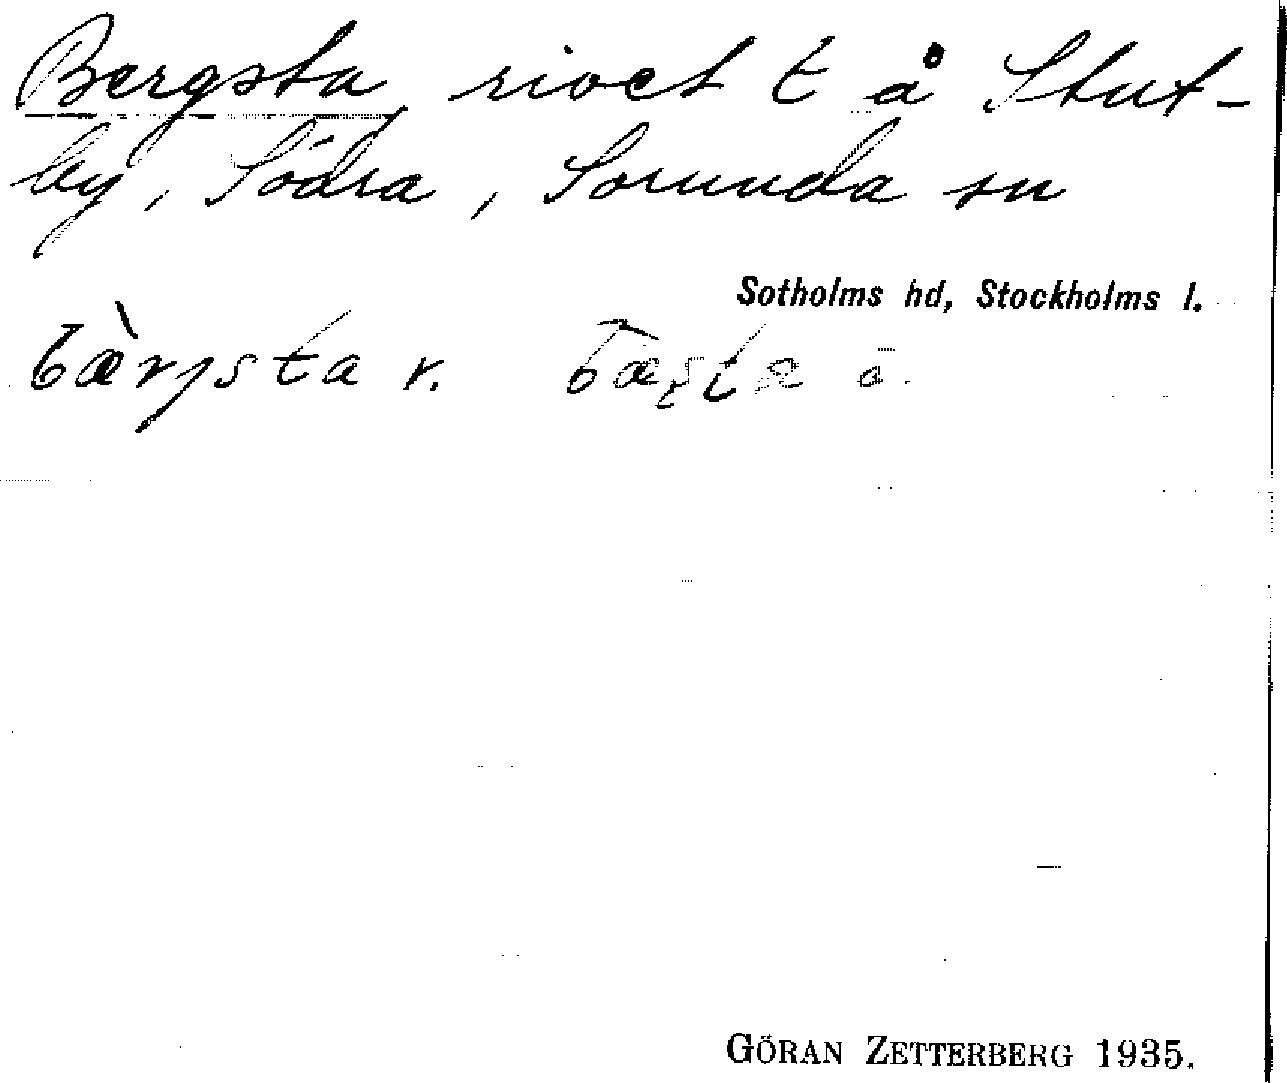 Bergsta, rivet t å Stut-
by, Södra, Sorunda sn
Sotholms hd, Stockholms l.
bæ̀rjsta r.
GÖRAN ZETTERBERG 1935.